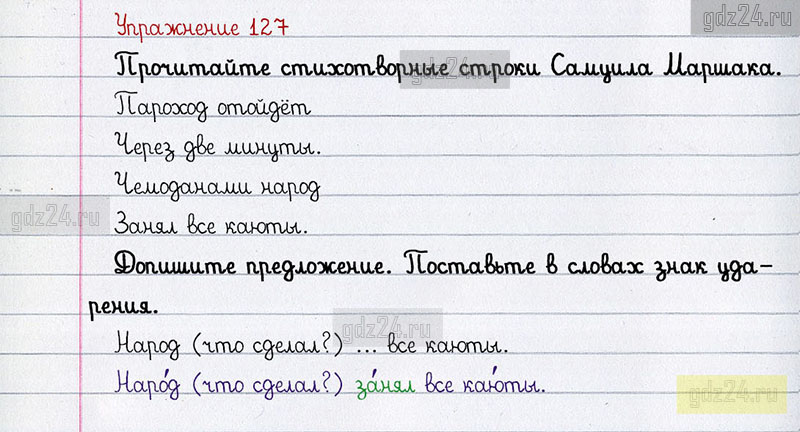 gdz24.ru
Упражнение 127
Прочитайте стихотворные строки Самуила Маршака.
gdz24.ru
Пароход отойдёт
Через две минуты.
Чемоданами народ
gdz24.ru
Занял все каюты.
Допишите предложение. Поставьте в словах знак уда-
рения.
gdz24.ru
Народ (что сделал?) ... все каюты.
Наро́д (что сделал?) за́нял все каю́ты.
gdz24.ru